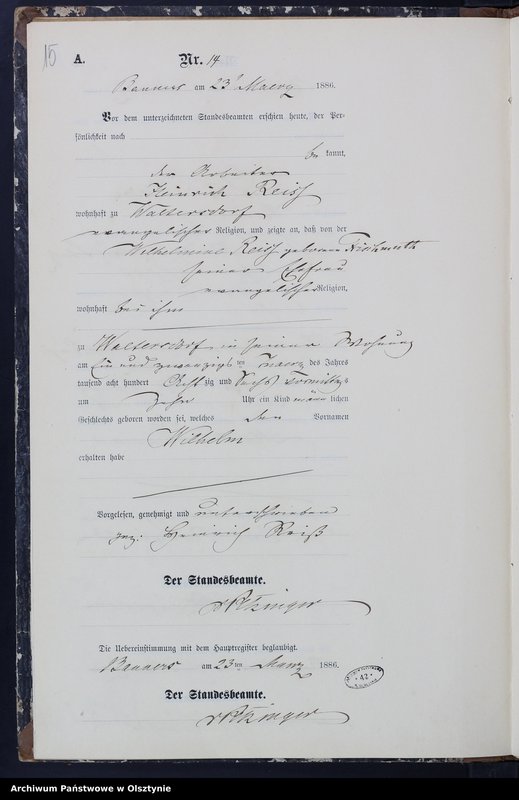 15
A. Nr. 14
Banners am 23t Maerz 1886.
Vor dem unterzeichneten Standesbeamten erschien heute, der Per-
sönlichkeit nach
be kannt,
der Arbeiter
Heinrich Reiß
wohnhaft zu Waltersdorf
evangelischer Religion, und zeigte an, daß von der
Wilhelmine Reiß geborene
seiner Ehefrau
evangelischer Religion,
wohnhaft bei ihm
zu Waltersdorf in seiner Wohnung
am Ein und zwanzigs ten Maerz des Jahres
tausend acht hundert Acht zig und Sechs Vormittags
um Zehn Uhr ein Kind männ lichen
Geschlechts geboren worden sei, welches den Vornamen
Wilhelm
erhalten habe
Vorgelesen, genehmigt und unterschrieben
gez: Heinrich Reiß
Der Standesbeamte.
Die Uebereinstimmung mit dem Hauptregister beglaubigt.
Banners am 23 ten Maerz 1886.
Der Standesbeamte.
42
Archiwum Państwowe w Olsztynie